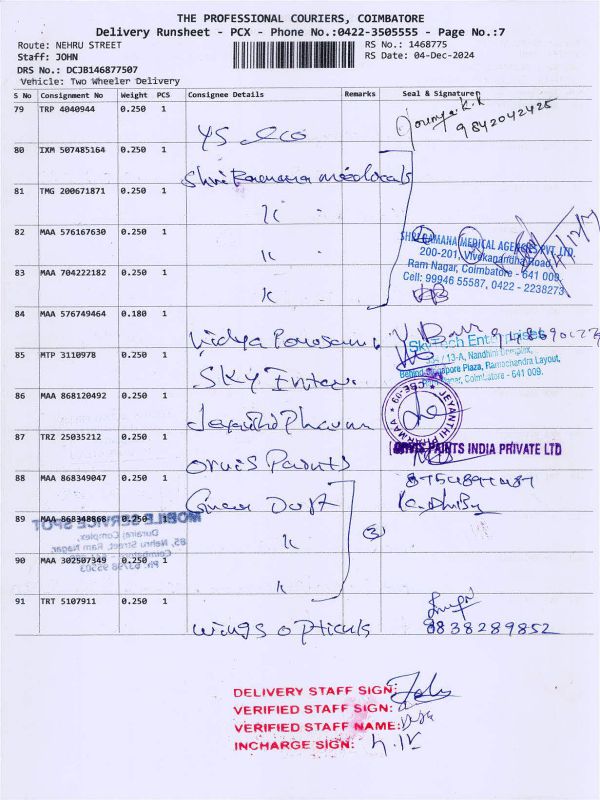 THE PROFESSIONAL COURIERS, COIMBATORE
Delivery Runsheet - PCX - Phone No.:0422-3505555 - Page No.:7
Route: NEHRU STREET
RS No.: 1468775
Staff: JOHN
RS Date: 04-Dec-2024
DRS No.: DCJB146877507
Vehicle: Two Wheeler Delivery
S No Consignment No Weight PCS Consignee Details Remarks Seal & Signature
79 TRP 4040944 0.250 1
9842042425
80 IXM 507485164 0.250 1
Shri Ramana medicals
81 TMG 200671871 0.250 1
82 MAA 576167630 0.250 1
SHRI RAMANA MEDICAL AGENCIES PVT. LTD.
200-201, Vivekanandha Road,
Ram Nagar, Coimbatore - 641 009.
Cell: 99946 55587, 0422 - 2238273
83 MAA 704222182 0.250 1
84 MAA 576749464 0.180 1
Vidya
85 MTP 3110978 0.250 1
SKY Inter
SkyTech Enterprises
/ 13-A, Nandhini Complex,
Behind Singapore Plaza, Ramachandra Layout,
Coimbatore - 641 009.
86 MAA 868120492 0.250 1
Jeyanthi Pharma
JEYANTHI PHARMAA
CBE-09
87 TRZ 25035212 0.250 1
orvis Paints
ORVIS PAINTS INDIA PRIVATE LTD
88 MAA 868349047 0.250 1
89 MAA 868348868 0.250 1
3
MOBILE SERVICE SPOT
Durairaj Complex,
85, Nehru Street, Ram Nagar,
90 MAA 302507349 0.250 1
91 TRT 5107911 0.250 1
wings opticals
9838289852
DELIVERY STAFF SIGN:
VERIFIED STAFF SIGN:
VERIFIED STAFF NAME:
INCHARGE SIGN: